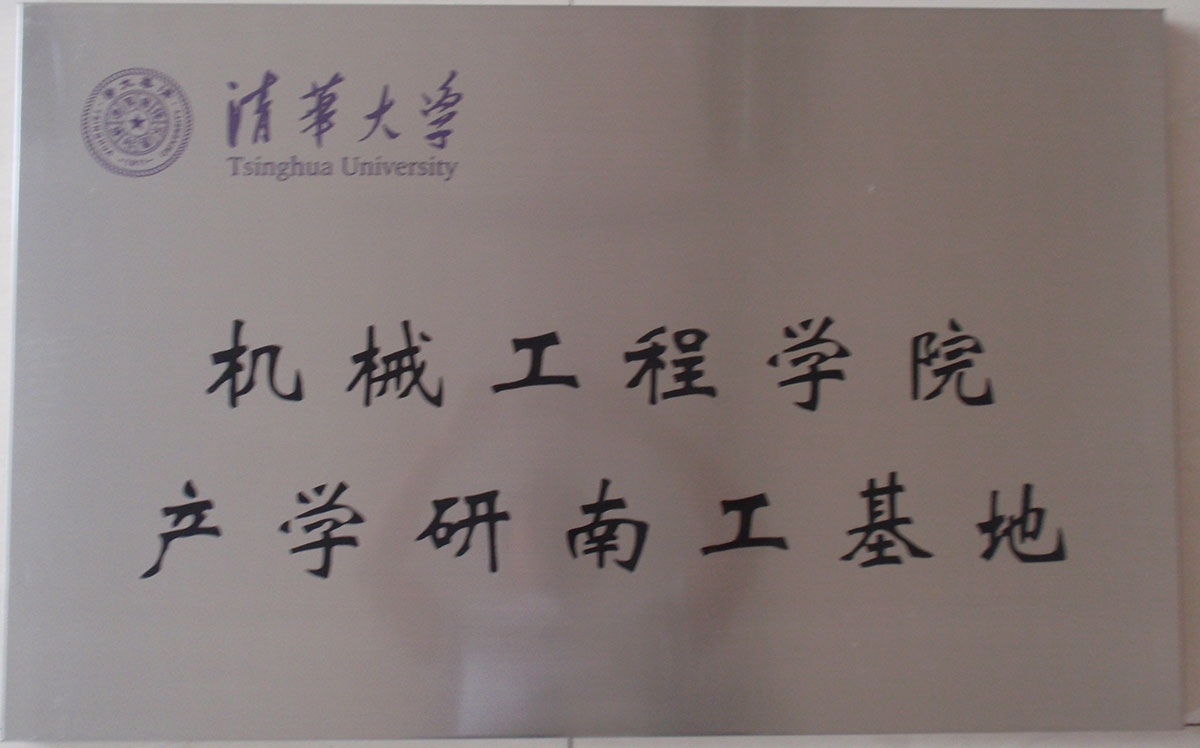 清華大学
Tsinghua University
机械工程学院
产学研南工基地